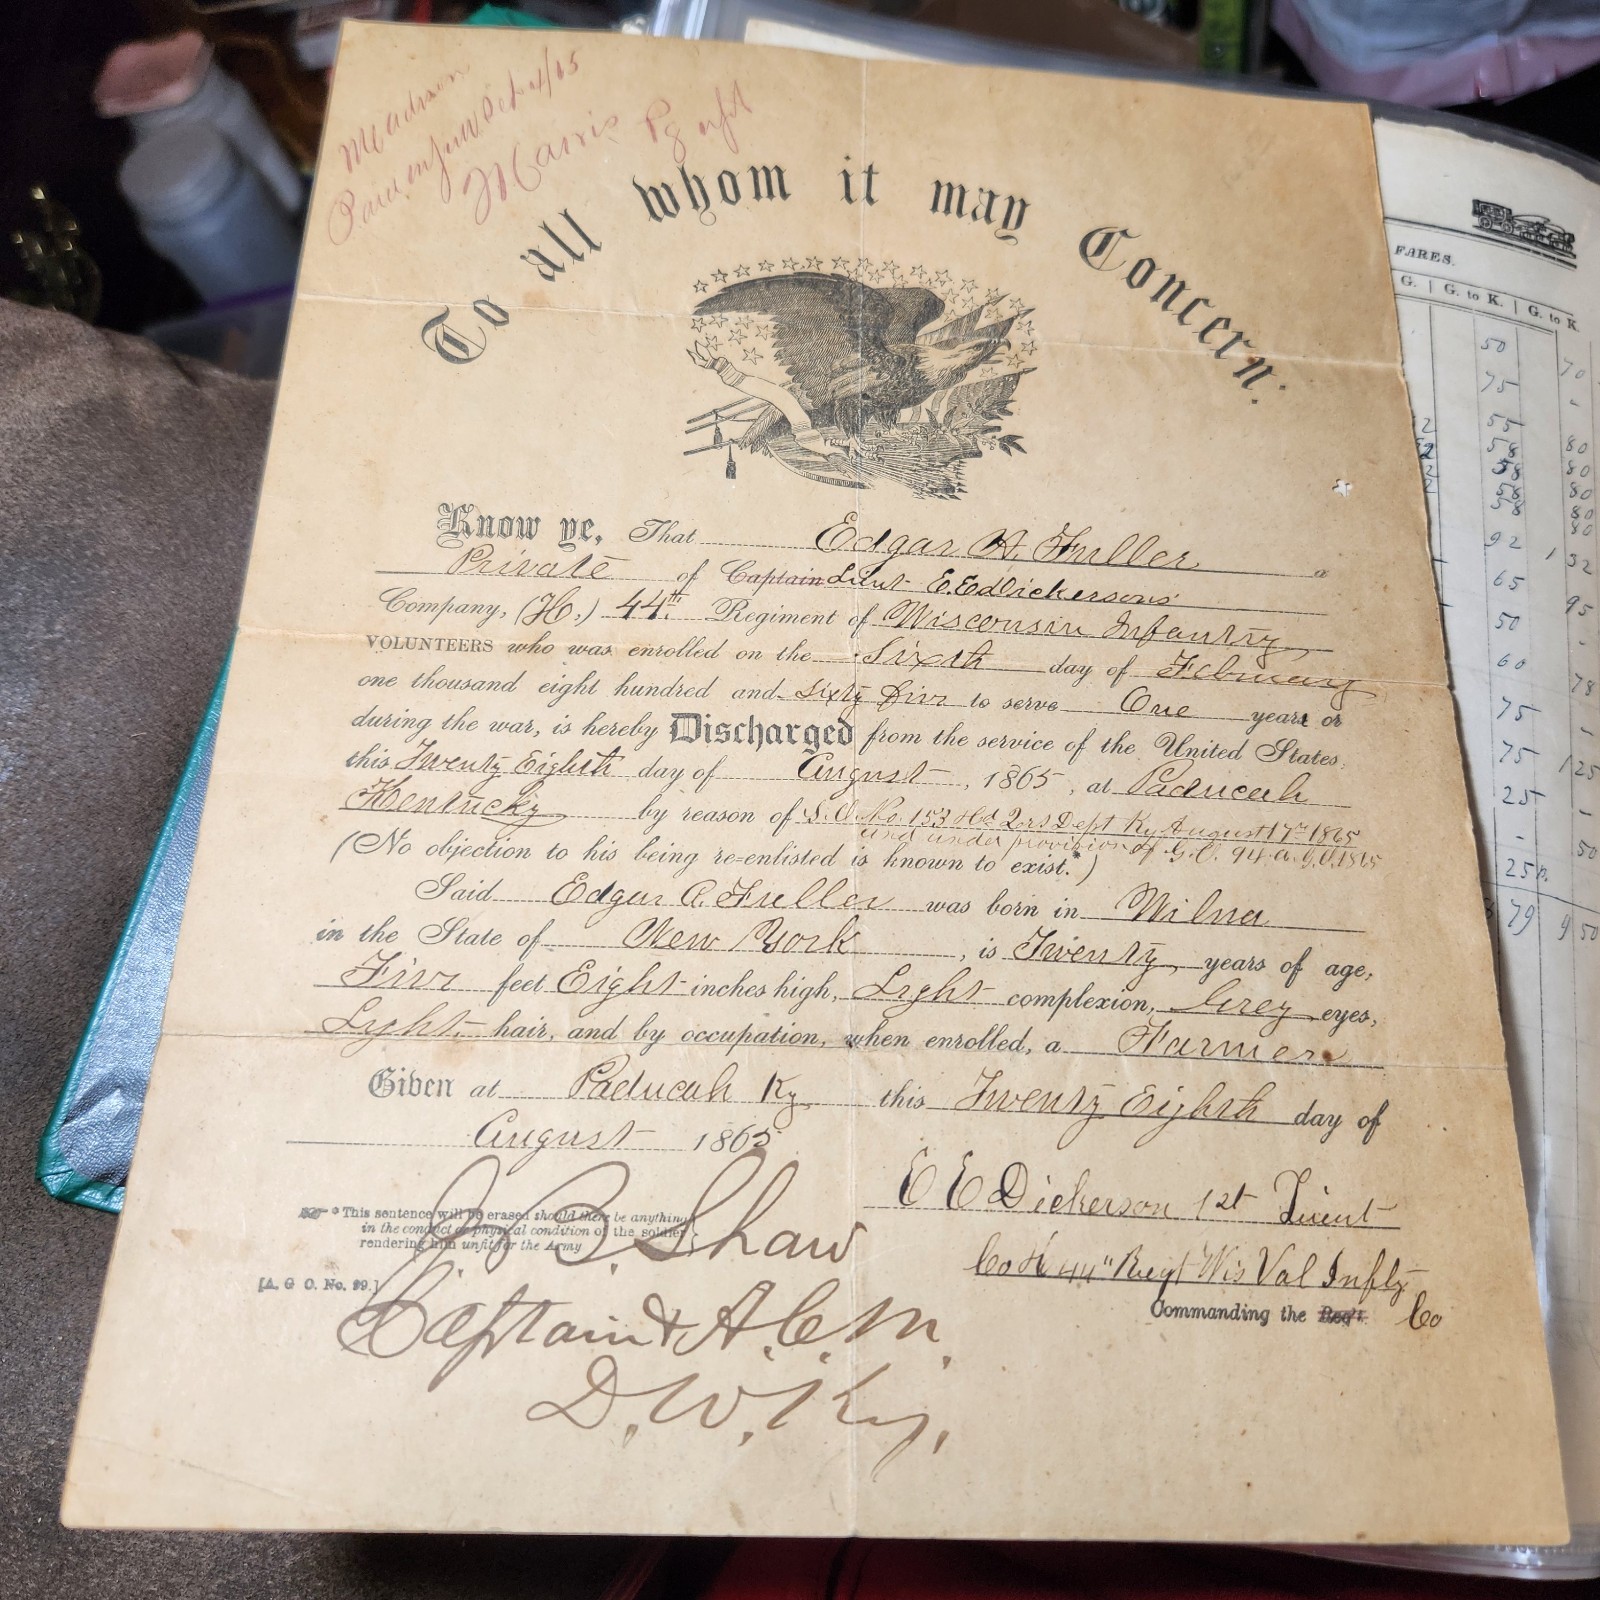 Madison
Paid in full Oct 4/65
Harris Pay
To all whom it may Concern:
Know ye, That Edgar A. Fuller a
Private of Captain Lieut E. E. Dickersons
Company, (H.) 44th Regiment of Wisconsin Infantry
VOLUNTEERS who was enrolled on the Sixth day of February
one thousand eight hundred and Sixty Five to serve One years or
during the war, is hereby Discharged from the service of the United States,
this Twenty Eighth day of August, 1865, at Paducah
Kentucky by reason of S.O. No. 153 Hd Qrs Dept Ky August 17th 1865
and under provision of G.O. 94 A.G.O. 1865
(No objection to his being re-enlisted is known to exist.*)
Said Edgar A. Fuller was born in Wilna
in the State of New York, is Twenty years of age,
Five feet Eight inches high, Light complexion, Grey eyes,
Light hair, and by occupation, when enrolled, a Farmer
Given at Paducah Ky this Twenty Eighth day of
August 1865
E E Dickerson 1st Lieut
Co H 44" Regt Wis Vol Inftg
Commanding the Reg't. Co
* This sentence will be erased should there be anything
in the conduct or physical condition of the soldier
rendering him unfit for the Army
[A. G O. No. 99.]
J. B. Shaw
Captain & A.C.M.
D.W.Ky.
FARES.
G. | G. to K. | G. to K.
50 70
75 -
2 55 80
2 58 80
2 58 80
2 58 80
92 1 32
65 95
50 -
60 78
75 -
75 1 25
25 -
- 50
25
79 9 50